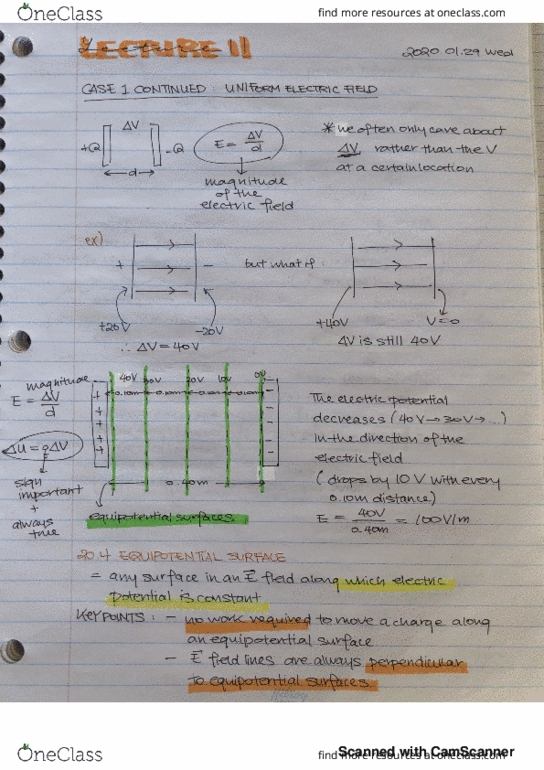 OneClass
find more resources at oneclass.com
LECTURE 11
2020.01.29 Wed
CASE 1 CONTINUED : UNIFORM ELECTRIC FIELD
ΔV
+Q
-Q
←d→
E = ΔV/d
magnitude
of the
electric field
* we often only care about
ΔV rather than the V
at a certain location
ex)
+
-
but what if
+20V
-20V
∴ ΔV = 40V
+40V
V=0
ΔV is still 40V
magnitude
E = ΔV/d
ΔU = qΔV
sign
important
+
always
true
40V 30V 20V 10V 0V
0.10m 0.10m 0.10m 0.10m
0.40m
equipotential surfaces
The electric potential
decreases (40V→30V→...)
in the direction of the
electric field
(drops by 10V with every
0.10m distance)
E = 40V/0.40m = 100V/m
20.4 EQUIPOTENTIAL SURFACE
= any surface in an E⃗ field along which electric
potential is constant
KEY POINTS : - no work required to move a charge along
an equipotential surface
- E⃗ field lines are always perpendicular
to equipotential surfaces
OneClass
find more resources at oneclass.com
Scanned with CamScanner